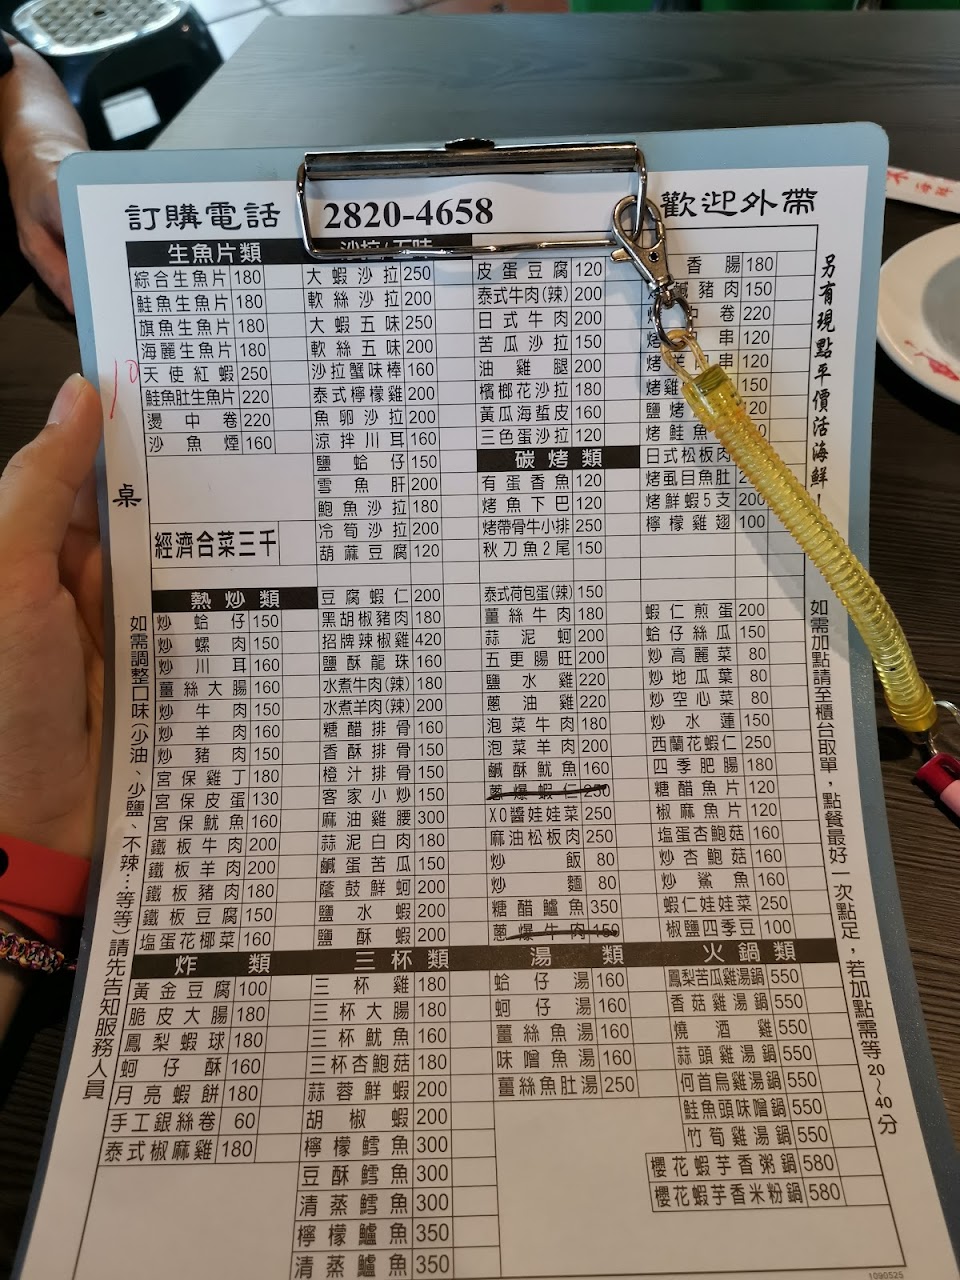 訂購電話 2820-4658 歡迎外帶
另有現點平價活海鮮!
10
桌
如需調整口味(少油、少鹽、不辣…等等)請先告知服務人員
如需加點請至櫃台取單,點餐最好一次點足,若加點需等20~40分
生魚片類
綜合生魚片 180
鮭魚生魚片 180
旗魚生魚片 180
海麗生魚片 180
天使紅蝦 250
鮭魚肚生魚片 220
燙中卷 220
沙魚煙 160
經濟合菜三千
沙拉/五味
大蝦沙拉 250
軟絲沙拉 200
大蝦五味 250
軟絲五味 200
沙拉蟹味棒 160
泰式檸檬雞 200
魚卵沙拉 200
涼拌川耳 160
鹽蛤仔 150
雪魚肝 200
鮑魚沙拉 180
冷筍沙拉 200
葫蔴豆腐 120
皮蛋豆腐 120
泰式牛肉(辣) 200
日式牛肉 200
苦瓜沙拉 150
油雞腿 200
檳榔花沙拉 180
黃瓜海蜇皮 160
三色蛋沙拉 120
碳烤類
有蛋香魚 120
烤魚下巴 120
烤帶骨牛小排 250
秋刀魚2尾 150
香腸 180
鹹豬肉 150
中卷 220
烤 串 120
烤 串 120
烤雞 150
鹽烤 20
烤鮭魚
日式松板肉
烤虱目魚肚
烤鮮蝦5支 200
檸檬雞翅 100
熱炒類
炒蛤仔 150
炒螺肉 150
炒川耳 160
薑絲大腸 160
炒牛肉 150
炒羊肉 160
炒豬肉 150
宮保雞丁 180
宮保皮蛋 130
宮保魷魚 160
鐵板牛肉 200
鐵板羊肉 200
鐵板豬肉 180
鐵板豆腐 150
塩蛋花椰菜 160
豆腐蝦仁 200
黑胡椒豬肉 180
招牌辣椒雞 420
鹽酥龍珠 160
水煮牛肉(辣) 180
水煮羊肉(辣) 200
糖醋排骨 160
香酥排骨 150
橙汁排骨 150
客家小炒 150
麻油雞腰 300
蒜泥白肉 180
鹹蛋苦瓜 150
蔭鼓鮮蚵 200
鹽水蝦 200
鹽酥蝦 200
泰式荷包蛋(辣) 150
薑絲牛肉 180
蒜泥蚵 200
五更腸旺 200
鹽水雞 220
蔥油雞 220
泡菜牛肉 180
泡菜羊肉 200
鹹酥魷魚 160
蔥爆蝦仁 250
XO醬娃娃菜 250
麻油松板肉 250
炒飯 80
炒麵 80
糖醋鱸魚 350
蔥爆牛肉 150
蝦仁煎蛋 200
蛤仔絲瓜 150
炒高麗菜 80
炒地瓜葉 80
炒空心菜 80
炒水蓮 150
西蘭花蝦仁 250
四季肥腸 180
糖醋魚片 120
椒麻魚片 120
塩蛋杏鮑菇 160
炒杏鮑菇 160
炒鯊魚 160
蝦仁娃娃菜 250
椒鹽四季豆 100
炸類
黃金豆腐 100
脆皮大腸 180
鳳梨蝦球 180
蚵仔酥 160
月亮蝦餅 180
手工銀絲卷 60
泰式椒麻雞 180
三杯類
三杯雞 180
三杯大腸 180
三杯魷魚 160
三杯杏鮑菇 180
蒜蓉鮮蝦 200
胡椒蝦 200
檸檬鱈魚 300
豆酥鱈魚 300
清蒸鱈魚 300
檸檬鱸魚 350
清蒸鱸魚 350
湯類
蛤仔湯 160
蚵仔湯 160
薑絲魚湯 160
味噌魚湯 160
薑絲魚肚湯 250
火鍋類
鳳梨苦瓜雞湯鍋 550
香菇雞湯鍋 550
燒酒雞 550
蒜頭雞湯鍋 550
何首烏雞湯鍋 550
鮭魚頭味噌鍋 550
竹筍雞湯鍋 550
櫻花蝦芋香粥鍋 580
櫻花蝦芋香米粉鍋 580
1090525